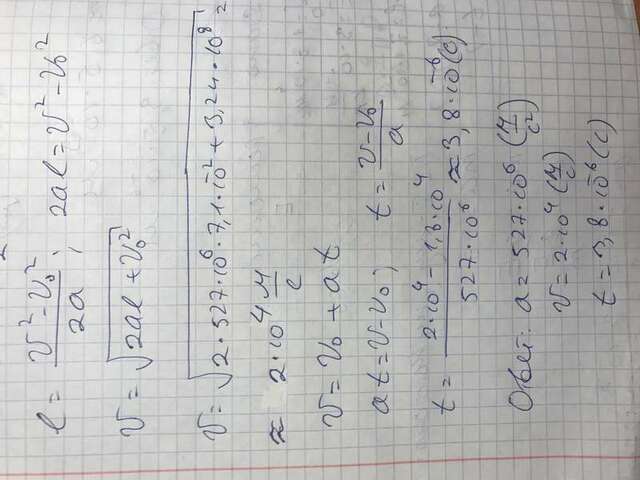 l = (v² - v₀²) / 2a ; 2al = v² - v₀²
v = √(2al + v₀²)
v = √(2·527·10⁶·7,1·10⁻² + 3,24·10⁸) =
≈ 2·10⁴ м/с
v = v₀ + at
at = v - v₀ ; t = (v - v₀) / a
t = (2·10⁴ - 1,8·10⁴) / (527·10⁶) ≈ 3,8·10⁻⁶ (с)
Ответ: a = 527·10⁶ (м/с²)
v = 2·10⁴ (м/с)
t = 3,8·10⁻⁶ (с)